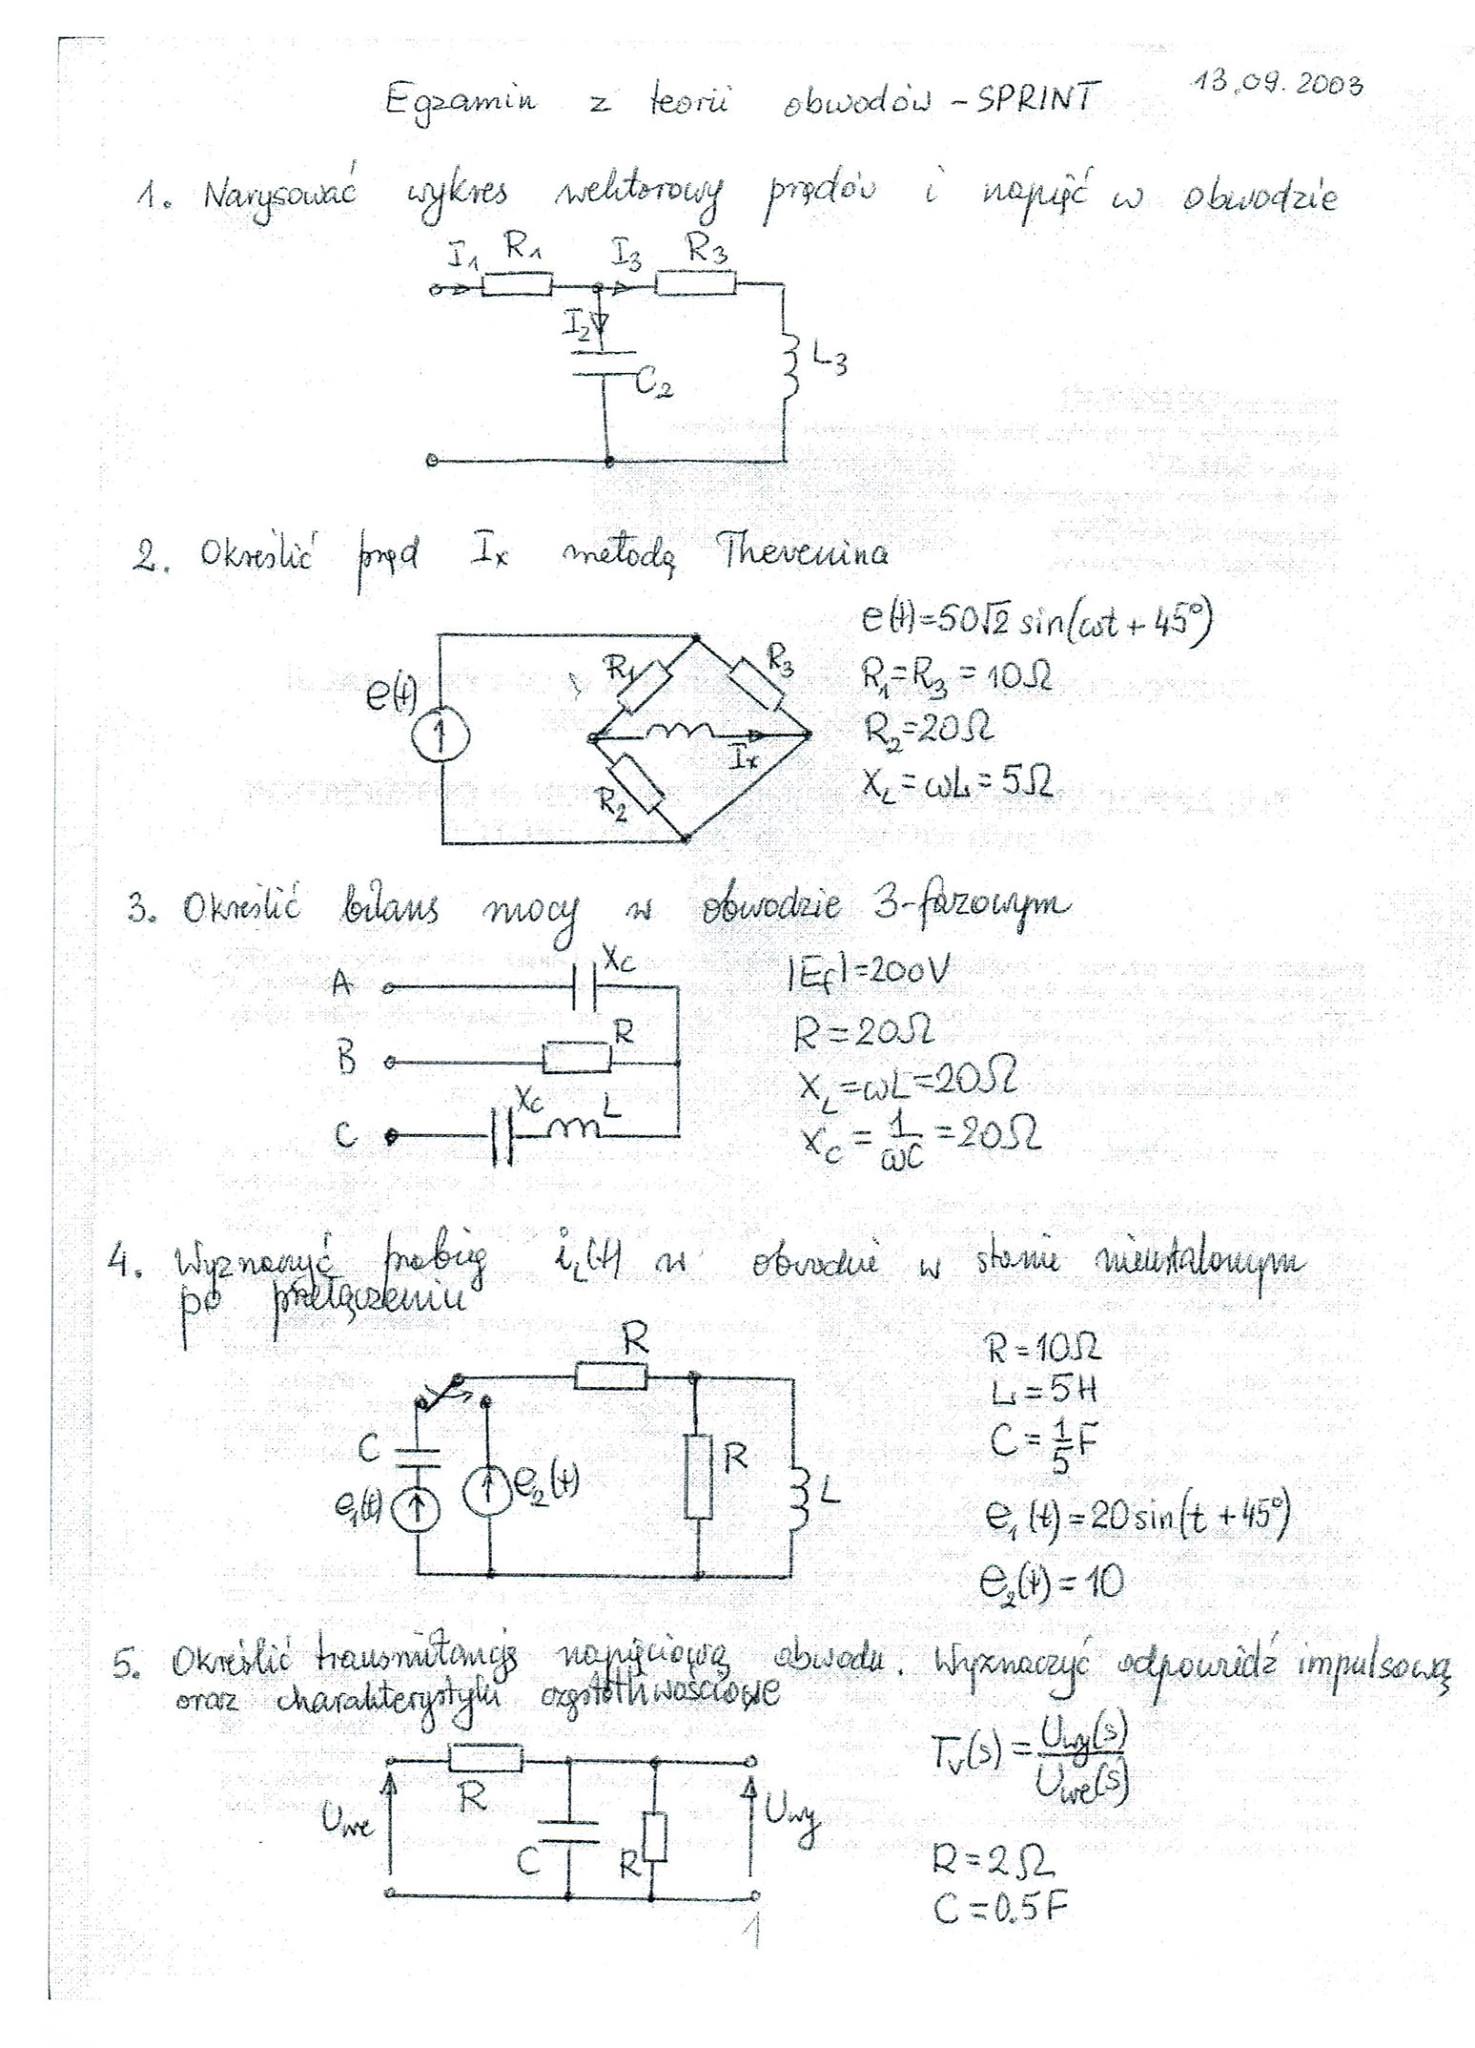 13.09.2003
Egzamin z teorii obwodów - SPRINT
1. Narysować wykres wektorowy prądów i napięć w obwodzie
I1 R1 I3 R3
I2
C2
L3
2. Określić prąd Ix metodą Thevenina
e(t)
R1
R3
Ix
R2
e(t)=50√2 sin(ωt + 45°)
R1=R3 = 10Ω
R2=20Ω
XL = ωL = 5Ω
3. Określić bilans mocy w obwodzie 3-fazowym
A XC
B R
C XC L
|Ef|=200V
R=20Ω
XL=ωL=20Ω
XC = 1/ωC = 20Ω
4. Wyznaczyć przebieg iL(t) w obwodzie w stanie nieustalonym
po przełączeniu
R
C
R
L
e1(t) e2(t)
R=10Ω
L=5H
C=1/5F
e1(t)=20sin(t+45°)
e2(t)=10
5. Określić transmitancję napięciową obwodu. Wyznaczyć odpowiedź impulsową
oraz charakterystyki częstotliwościowe
R
Uwe
C
R
Uwy
Tv(s) = Uwy(s)/Uwe(s)
R=2Ω
C=0.5F
1